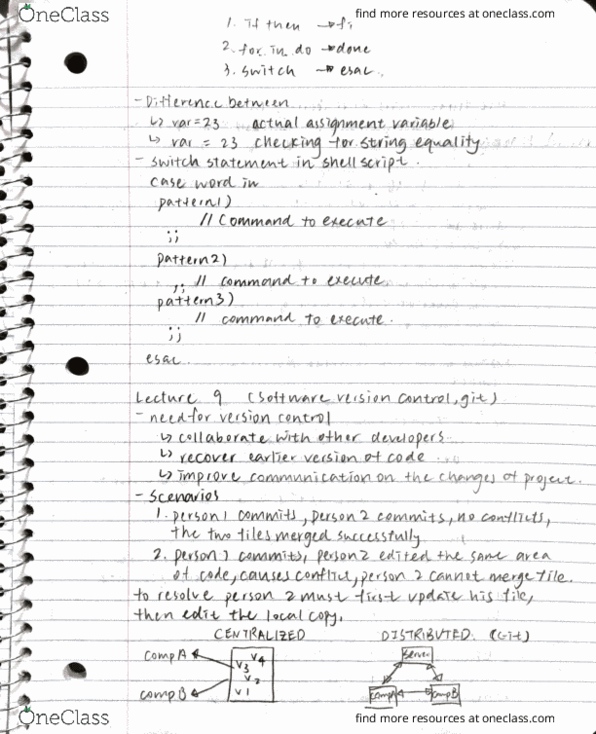 OneClass
find more resources at oneclass.com
1. if then → fi
2. for in do → done
3. switch → esac.
- Difference between
↳ var=23 actual assignment variable
↳ var = 23 checking for string equality
- switch statement in shell script.
case word in
pattern1)
// Command to execute
;;
pattern2)
;; // command to execute
pattern3)
// command to execute.
;;
esac.
Lecture 9 (Software version control, git)
- need for version control
↳ collaborate with other developers
↳ recover earlier version of code
↳ improve communication on the changes of project.
- Scenarios
1. person 1 commits, person 2 commits, no conflicts,
the two files merged successfully
2. person 1 commits, person 2 edited the same area
of code, causes conflict, person 2 cannot merge file.
to resolve person 2 must first update his file,
then edit the local copy.
CENTRALIZED DISTRIBUTED. (Git)
compA v3 v4 server
v2
compB v1 compA compB
OneClass
find more resources at oneclass.com